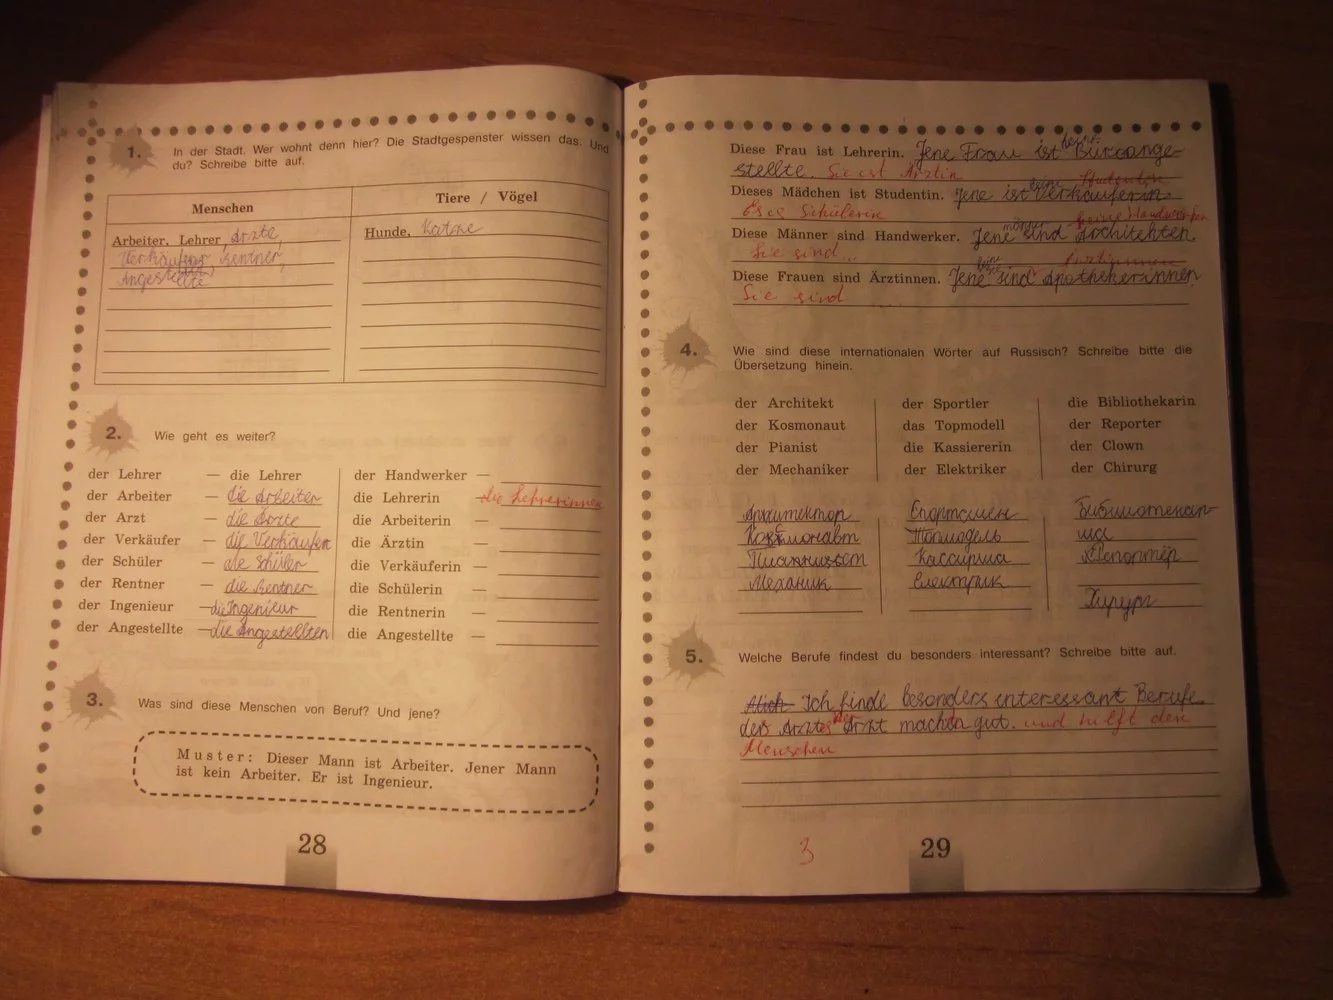 1. In der Stadt. Wer wohnt denn hier? Die Stadtgespenster wissen das. Und
du? Schreibe bitte auf.
Menschen
Tiere / Vögel
Arbeiter, Lehrer, Ärzte,
Verkäufer Rentner,
Angestellte
Hunde, Katze
2. Wie geht es weiter?
der Lehrer — die Lehrer
der Arbeiter — die Arbeiter
der Arzt — die Ärzte
der Verkäufer — die Verkäufer
der Schüler — die Schüler
der Rentner — die Rentner
der Ingenieur — die Ingenieur
der Angestellte — die Angestellten
der Handwerker —
die Lehrerin — die Lehrerinnen
die Arbeiterin —
die Ärztin —
die Verkäuferin —
die Schülerin —
die Rentnerin —
die Angestellte —
3. Was sind diese Menschen von Beruf? Und jene?
Muster: Dieser Mann ist Arbeiter. Jener Mann
ist kein Arbeiter. Er ist Ingenieur.
28
Diese Frau ist Lehrerin. Jene Frau ist Büroange-
stellte. Sie ist Ärztin
Dieses Mädchen ist Studentin. Jene ist eine Verkäuferin
Es is Schülerin
Diese Männer sind Handwerker. Jene männer sind Architekten
Sie sind...
Diese Frauen sind Ärztinnen. Jene sind Apothekerinnen
Sie sind
4. Wie sind diese internationalen Wörter auf Russisch? Schreibe bitte die
Übersetzung hinein.
der Architekt
der Kosmonaut
der Pianist
der Mechaniker
der Sportler
das Topmodell
die Kassiererin
der Elektriker
die Bibliothekarin
der Reporter
der Clown
der Chirurg
Архитектор
Космонавт
Пианинист
Механик
Спортсмен
Топмодель
Кассирша
Електрик
Библиотекар-
ша
Репортёр
Хирург
5. Welche Berufe findest du besonders interessant? Schreibe bitte auf.
Ich finde besonders interessant Berufe
des Arztes der Arzt macht gut. und hilft den
Menschen
3
29